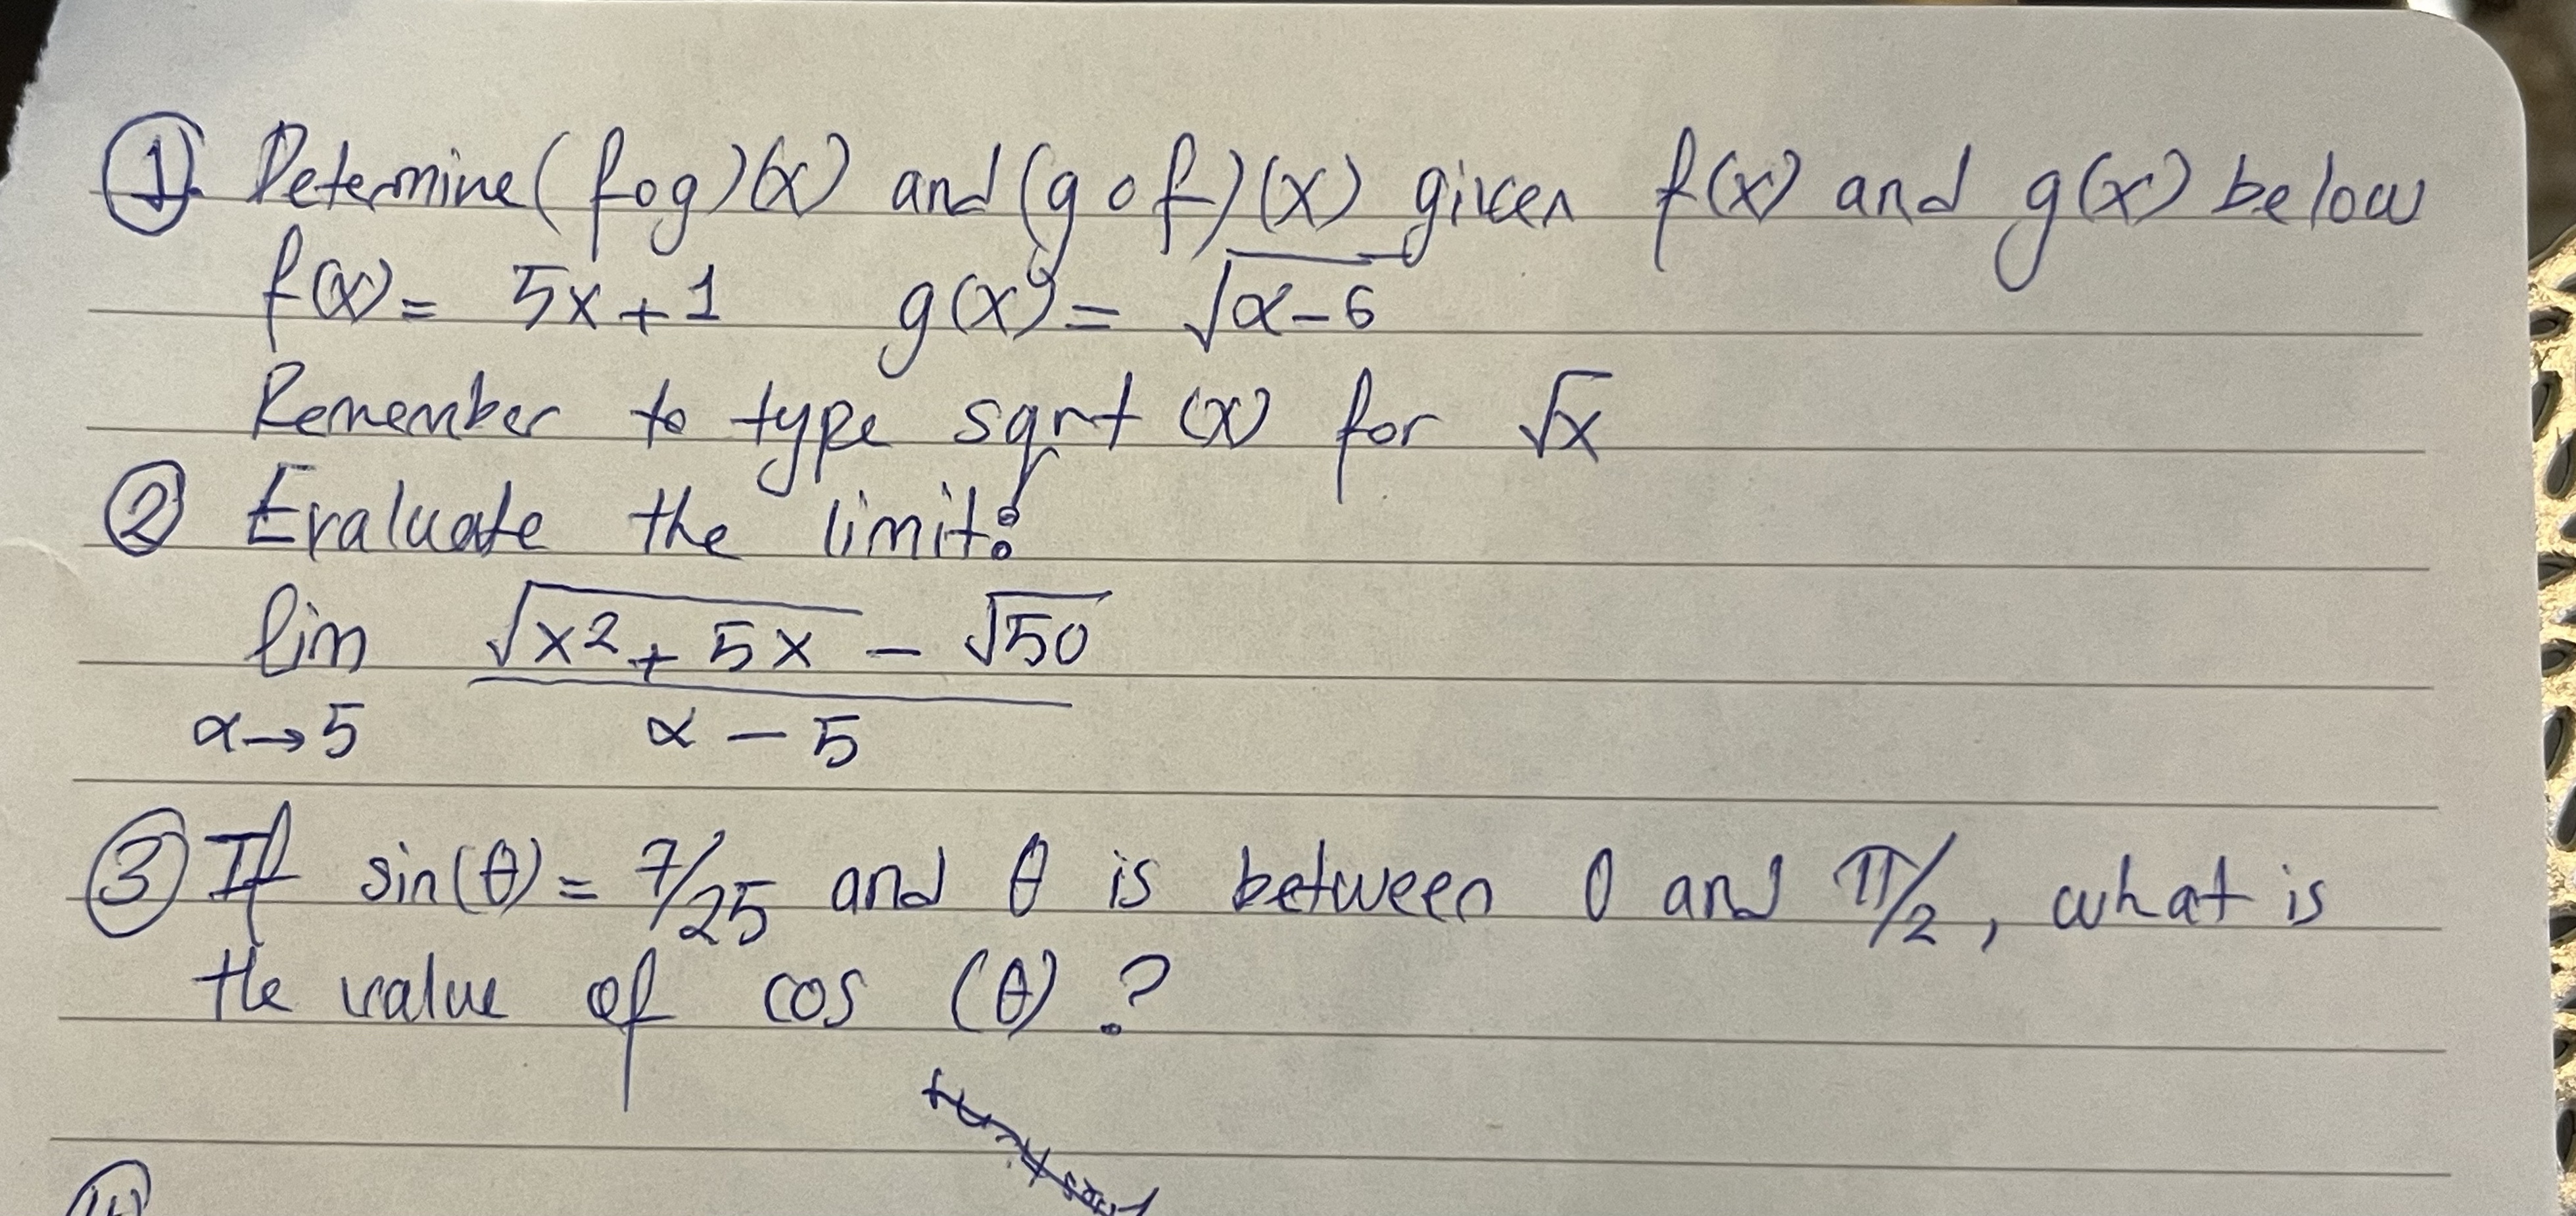 ① Determine (fog)(x) and (g o f)(x) given f(x) and g(x) below
f(x) = 5x + 1 g(x) = √x-6
Remember to type sqrt (x) for √x
② Evaluate the limit:
lim √x2 + 5x - √50
x→5 x - 5
③ If sin(θ) = 7/25 and θ is between 0 and π/2, what is
the value of cos (θ) ?